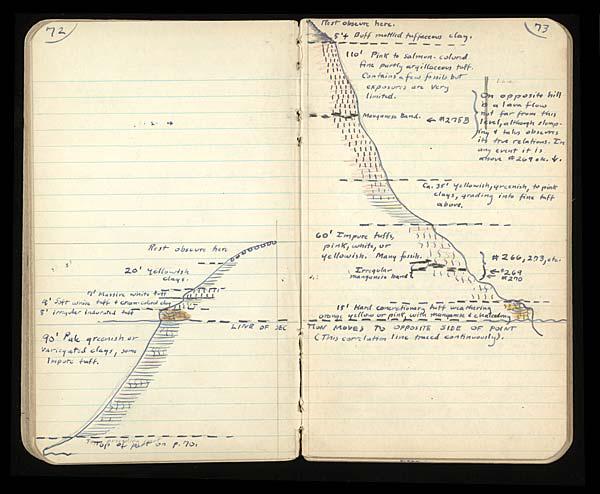 72
Rest obscure here
20' Yellowish
clays.
7' Massive white tuff
4' Soft white tuff + cream colored clay
8' irregular indurated tuff
90' Pale greenish or
variegated clays, some
impure tuff.
LINE OF SEC
Top of part on p. 70.
73
Rest obscure here.
5'± Buff mottled tuffaceous clay.
110' Pink to salmon-colored
fine partly argillaceous tuff.
Contains a few fossils but
exposures are very
limited.
Manganese Band.
← #275B
On opposite hill
is a lava flow
not far from this
level, although slump-
ing & talus obscures
its true relations. In
any event it is
above #269 etc.
Ca. 35' Yellowish, greenish, to pink
clays, grading into fine tuff
above.
60' Impure tuffs,
pink, white, or
yellowish. Many fossils.
Irregular
manganese band
#266, 273, etc.
← #269
#270
15' Hard concretionary tuff weathering
orange, yellow or pink, with manganese & chalcedony
TION MOVES TO OPPOSITE SIDE OF POINT
(This correlation line traced continuously).